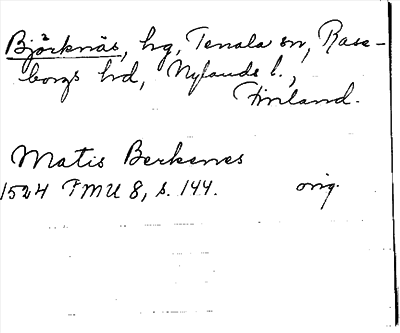 Björknäs, hg, Tenala sn, Rase-
borgs hd, Nylands l.,
Finland.
Matis Berkenes
1524 FMU 8, s. 144. orig.